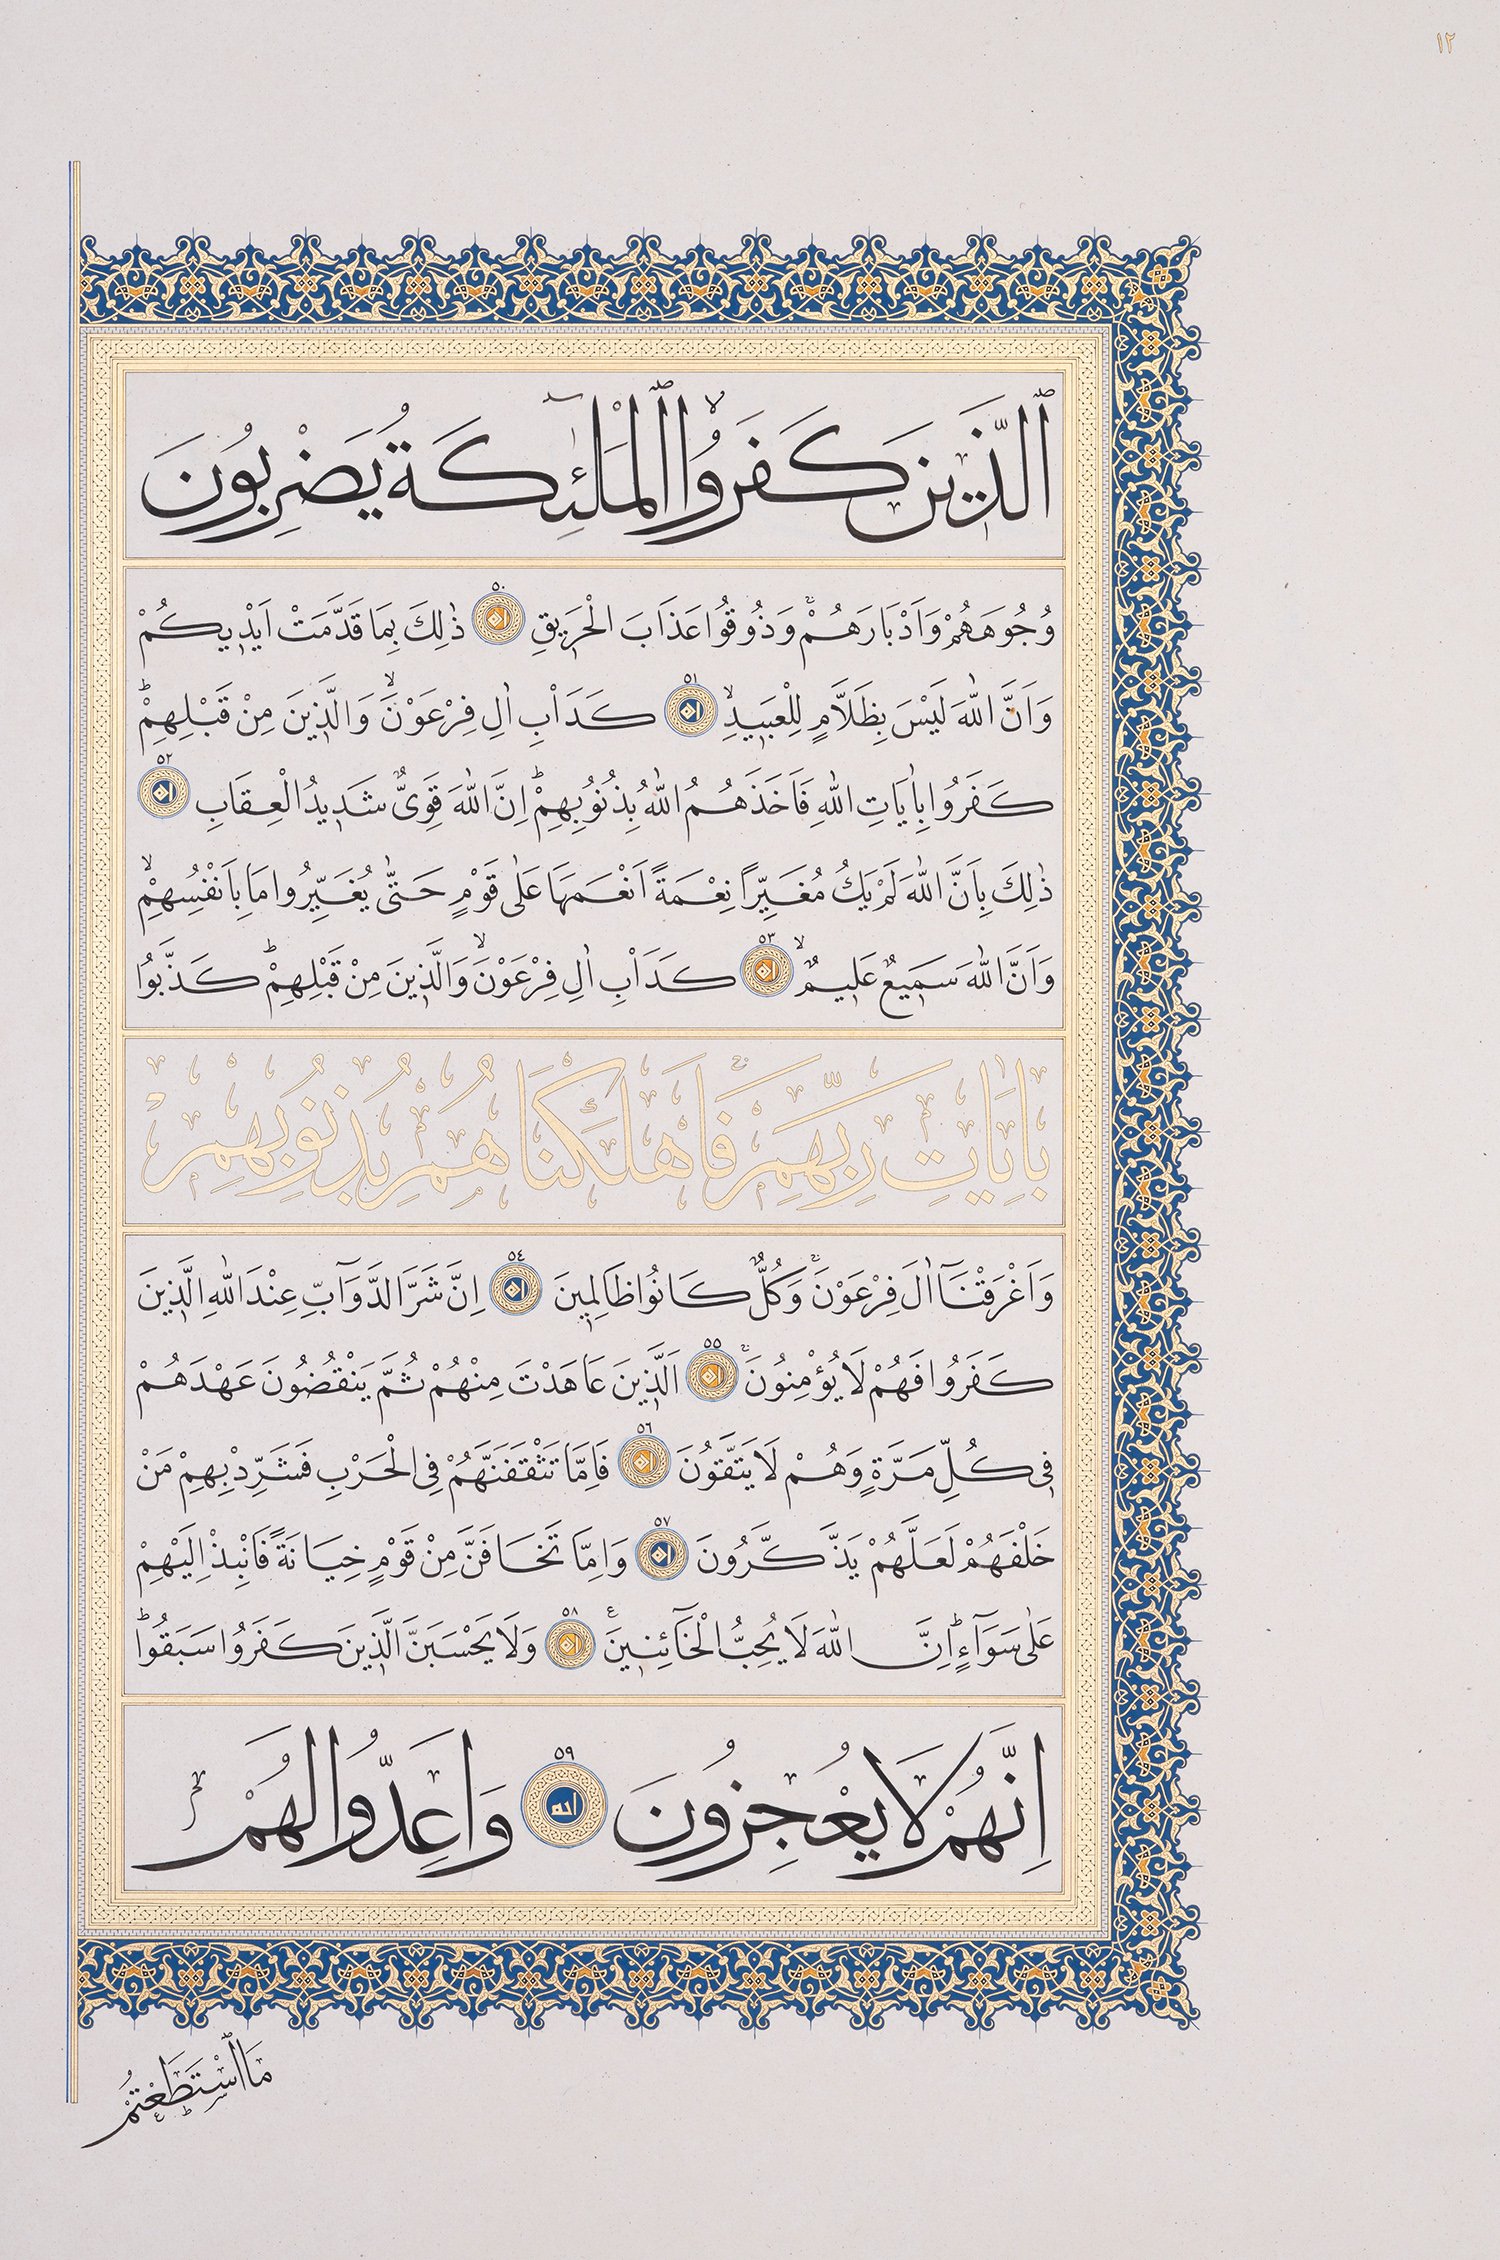 ١٢
ٱلَّذِينَ كَفَرُوا ٱلْمَلٰٓئِكَةُ يَضْرِبُونَ
وُجُوهَهُمْ وَاَدْبَارَهُمْۚ وَذُوقُوا عَذَابَ الْحَرِيقِ ٥٠ ذٰلِكَ بِمَا قَدَّمَتْ اَيْدِيكُمْ
وَاَنَّ اللّٰهَ لَيْسَ بِظَلَّامٍ لِلْعَبِيدِۙ ٥١ كَدَاْبِ اٰلِ فِرْعَوْنَۙ وَالَّذِينَ مِنْ قَبْلِهِمْۜ
كَفَرُوا بِاٰيَاتِ اللّٰهِ فَاَخَذَهُمُ اللّٰهُ بِذُنُوبِهِمْۜ اِنَّ اللّٰهَ قَوِىٌّ شَدِيدُ الْعِقَابِ ٥٢
ذٰلِكَ بِاَنَّ اللّٰهَ لَمْ يَكُ مُغَيِّرًا نِعْمَةً اَنْعَمَهَا عَلٰى قَوْمٍ حَتّٰى يُغَيِّرُوا مَا بِاَنْفُسِهِمْۙ
وَاَنَّ اللّٰهَ سَمِيعٌ عَلِيمٌۙ ٥٣ كَدَاْبِ اٰلِ فِرْعَوْنَۙ وَالَّذِينَ مِنْ قَبْلِهِمْۜ كَذَّبُوا
بِاٰيَاتِ رَبِّهِمْ فَاَهْلَكْنَاهُمْ بِذُنُوبِهِمْ
وَاَغْرَقْنَٓا اٰلَ فِرْعَوْنَۚ وَكُلٌّ كَانُوا ظَالِمِينَ ٥٤ اِنَّ شَرَّ الدَّوَٓابِّ عِنْدَ اللّٰهِ الَّذِينَ
كَفَرُوا فَهُمْ لَا يُؤْمِنُونَۚ ٥٥ اَلَّذِينَ عَاهَدْتَ مِنْهُمْ ثُمَّ يَنْقُضُونَ عَهْدَهُمْ
فِى كُلِّ مَرَّةٍ وَهُمْ لَا يَتَّقُونَ ٥٦ فَاِمَّا تَثْقَفَنَّهُمْ فِى الْحَرْبِ فَشَرِّدْ بِهِمْ مَنْ
خَلْفَهُمْ لَعَلَّهُمْ يَذَّكَّرُونَ ٥٧ وَاِمَّا تَخَافَنَّ مِنْ قَوْمٍ خِيَانَةً فَانْبِذْ اِلَيْهِمْ
عَلٰى سَوَٓاءٍۜ اِنَّ اللّٰهَ لَا يُحِبُّ الْخَٓائِنِينَ ٥٨ وَلَا يَحْسَبَنَّ الَّذِينَ كَفَرُوا سَبَقُواۜ
اِنَّهُمْ لَا يُعْجِزُونَ ٥٩ وَاَعِدُّوا لَهُمْ
مَا اسْتَطَعْتُمْ